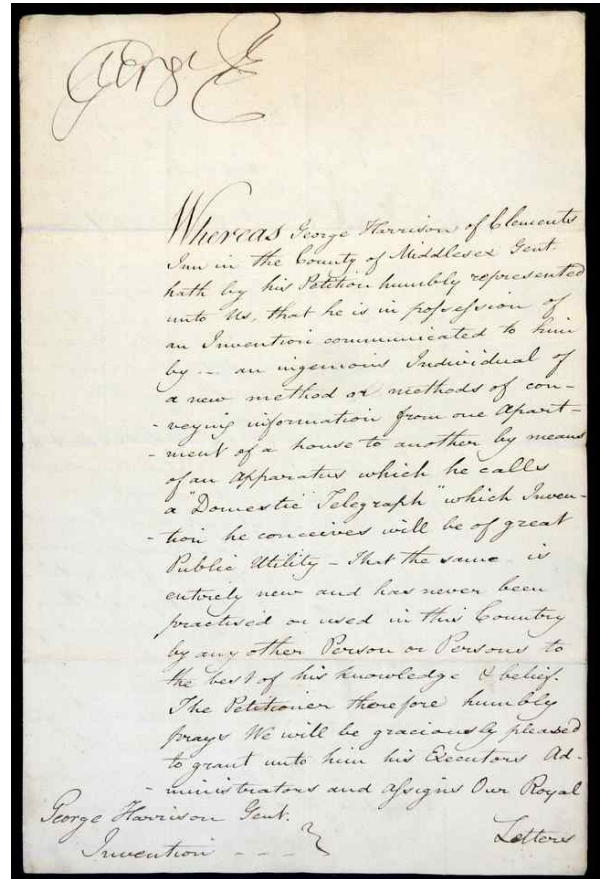 George R
Whereas George Harrison of Clements
Inn in the County of Middlesex Gent.
hath by his Petition humbly represented
unto Us, that he is in possession of
an Invention communicated to him
by -- an ingenious Individual of
a new method or methods of con-
-veying information from one Apart-
-ment of a house to another by means
of an Apparatus which he calls
a "Domestic Telegraph" which Inven-
-tion he conceives will be of great
Public Utility - That the same is
entirely new and has never been
practised or used in this Country
by any other Person or Persons to
the best of his knowledge & belief.
The Petitioner therefore humbly
prays We will be graciously pleased
to grant unto him his Executors Ad-
-ministrators and Assigns Our Royal
Letters
George Harrison Gent.
Invention - - -